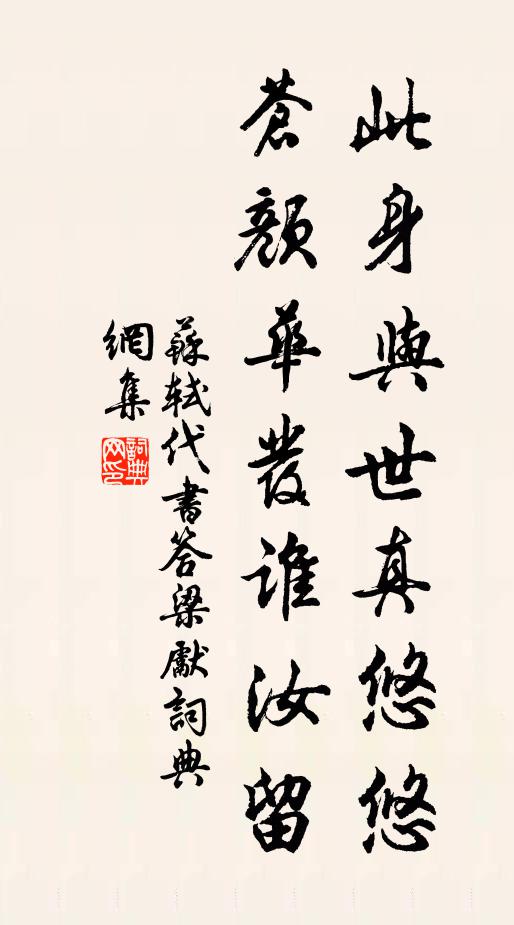 此身與世真悠悠
蒼顏華發誰汝留
蘇軾代書答梁獻詞典
網集
詞典網印